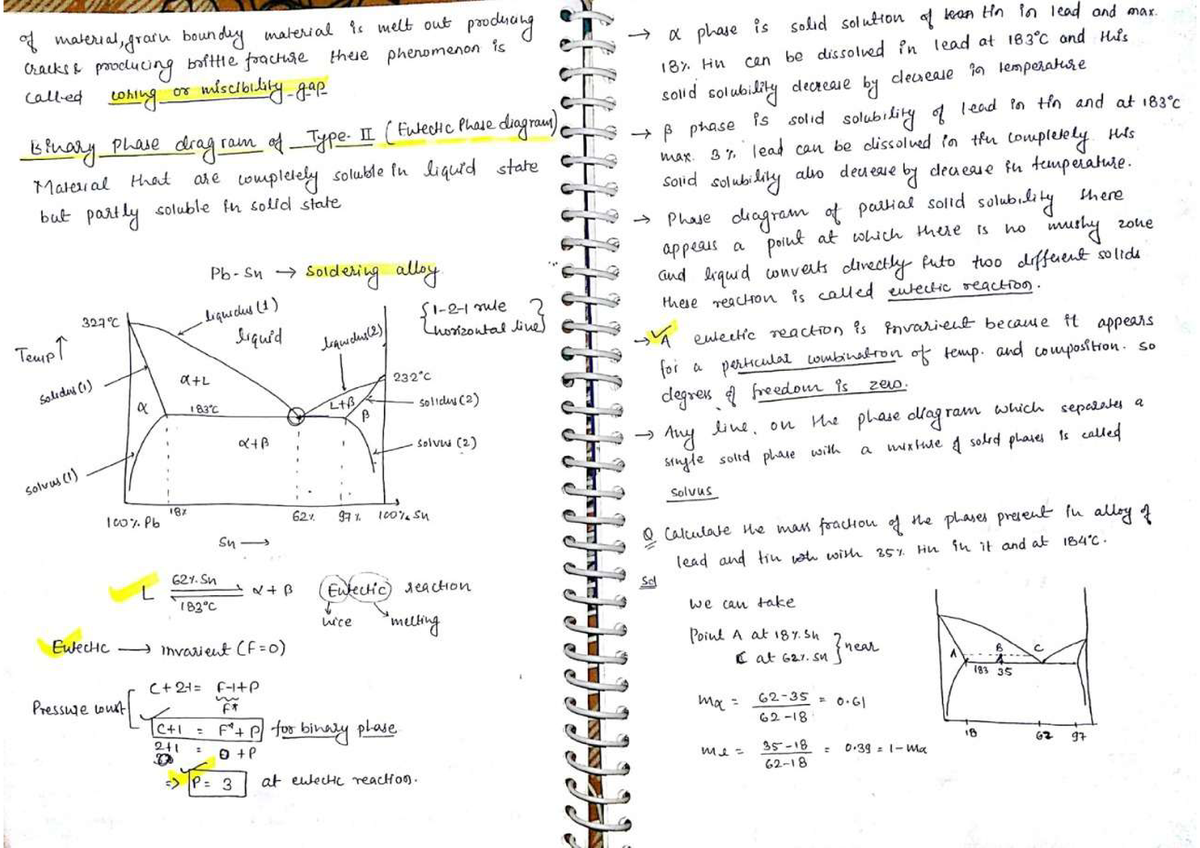 of material, grain boundry material is melt out producing
cracks & producing brittle fracture these phenomenon is
called coring or miscibility gap
Binary phase diagram of Type-II (Eutectic Phase diagram)
Material that are completely soluble in liquid state
but partly soluble in solid state
Pb-Sn → soldering alloy
327°C
liquidus (1)
liquid
liquidus(2)
{1-2-1 rule
horizontal line}
Temp ↑
solidus (1)
α+L
232°C
α
183°C
L+β
β
solidus (2)
α+β
solvus (2)
solvus (1)
18%
62%
97%
100% Pb
100% Sn
Sn →
L 62% Sn ⇌ 183°C α + β (Eutectic) reaction
nice melting
Eutectic → invarient (F=0)
Pressure const
C+2-1= F-1+P
F*
C+1 = F*+P for binary phase
2+1 = 0 +P
⇒ P = 3 at eutectic reaction.
→ α phase is solid solution of tin in lead and max.
18% tin can be dissolved in lead at 183°C and this
solid solubility decrease by decrease in temperature
→ β phase is solid solubility of lead in tin and at 183°C
max. 3% lead can be dissolved in tin completely. this
solid solubility also decrease by decrease in temperature.
→ Phase diagram of partial solid solubility there
appears a point at which there is no mushy zone
and liquid converts directly into two different solids
these reaction is called eutectic reaction.
→ A eutectic reaction is invarient because it appears
for a perticular combination of temp. and composition. so
degrees of freedom is zero.
→ Any line, on the phase diagram which separates a
single solid phase with a mixture of solid phases is called
solvus
Q Calculate the mass fraction of the phases present in alloy of
lead and tin with 35% tin in it and at 184°C.
Sol
we can take
Point A at 18% Sn
C at 62% Sn } near
mα = 62-35 / 62-18 = 0.61
mℓ = 35-18 / 62-18 = 0.39 = 1-mα
A
B
C
183
35
18
62
97